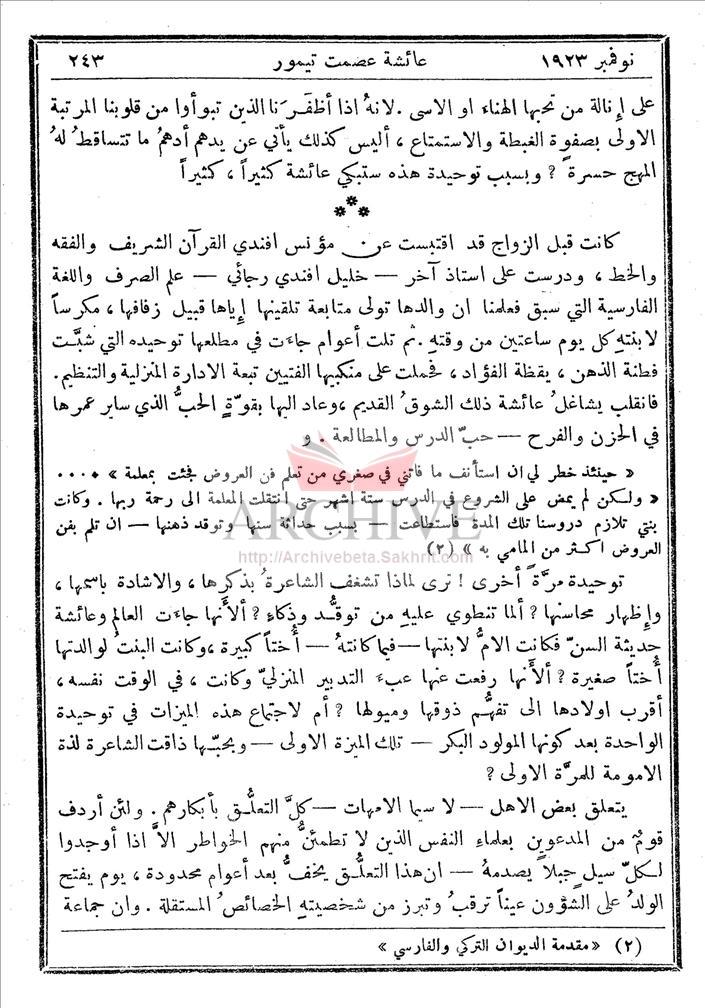 نوفمبر ١٩٢٣ عائشة عصمت تيمور ٢٤٣
على إنالة من تحبها الهناء او الاسى . لانهُ اذا أظفرَنا الذين تبوأوا من قلوبنا المرتبة
الاولى بصفوة الغبطة والاستمتاع ، أليس كذلك يأتي عن يدهم أدهمُ ما تتساقطُ لهُ
المهج حسرةً ? وبسبب توحيدة هذه ستبكي عائشة كثيراً ، كثيراً
***
كانت قبل الزواج قد اقتبست عن مؤنس افندي القرآن الشريف والفقه
والخط ، ودرست على استاذ آخر — خليل افندي رجائي — علم الصرف واللغة
الفارسية التي سبق فعلمنا ان والدها تولى متابعة تلقينها إياها قبيل زفافها ، مكرساً
لابنتهِ كل يوم ساعتين من وقتهِ . ثم تلت أعوام جاءت في مطلعها توحيده التي شبَّت
فطنة الذهن ، يقظة الفؤاد ، فحملت على منكبيها الفتيين تبعة الادارة المنزلية والتنظيم .
فانقلب يشاغلُ عائشة ذلك الشوقُ القديم ، وعاد اليها بقوَّةٍ الحبُّ الذي ساير عمرها
في الحزن والفرح — حبّ الدرس والمطالعة . و
« حينئذ خطر لي ان استأنف ما فاتني في صغري من تعلم فن العروض فجئت بمعلمة » ....
« ولكن لم يمض على الشروع في الدرس ستة اشهر حتى انتقلت المعلمة الى رحمة ربها . وكانت
بنتي تلازم دروسنا تلك المدة فاستطاعت — بسبب حداثة سنها وتوقد ذهنها — ان تلم بفن
العروض اكثر من المامي به » (٢)
توحيدة مرَّةً أخرى ! ترى لماذا تشغف الشاعرةُ بذكرها ، والاشادة باسمها ،
وإظهار محاسنها ? ألما تنطوي عليهِ من توقُّد وذكاءٍ ? ألأنها جاءت العالم وعائشة
حديثة السنّ فكانت الامُّ لابنتها — فيما كانتهُ — أُختاً كبيرة ، وكانت البنتُ لوالدتها
أُختاً صغيرة ? ألأنها رفعت عنها عبءَ التدبير المنزليّ وكانت ، في الوقت نفسه ،
أقرب اولادها الى تفهُّم ذوقها وميولها ? أم لاجتماع هذه الميزات في توحيدة
الواحدة بعد كونها المولود البكر — تلك الميزة الاولى — وبحبّها ذاقت الشاعرة لذة
الامومة للمرَّة الاولى ?
يتعلق بعض الاهل — لا سيما الامهات — كلَّ التعلُّق بأبكارهم . ولئن أردف
قومٌ من المدعوين بعلماءِ النفس الذين لا تطمئنُّ منهم الخواطر الاَّ اذا أوجدوا
لكلّ سيل جبلاً يصدمهُ — ان هذا التعلُّق يخفُّ بعد أعوام محدودة ، يوم يفتح
الولدُ على الشؤون عيناً ترقبُ وتبرز من شخصيتهِ الخصائصُ المستقلة . وان جماعة
(٢) « مقدمة الديوان التركي والفارسي »
ARCHIVE
http://Archivebeta.Sakhrit.com